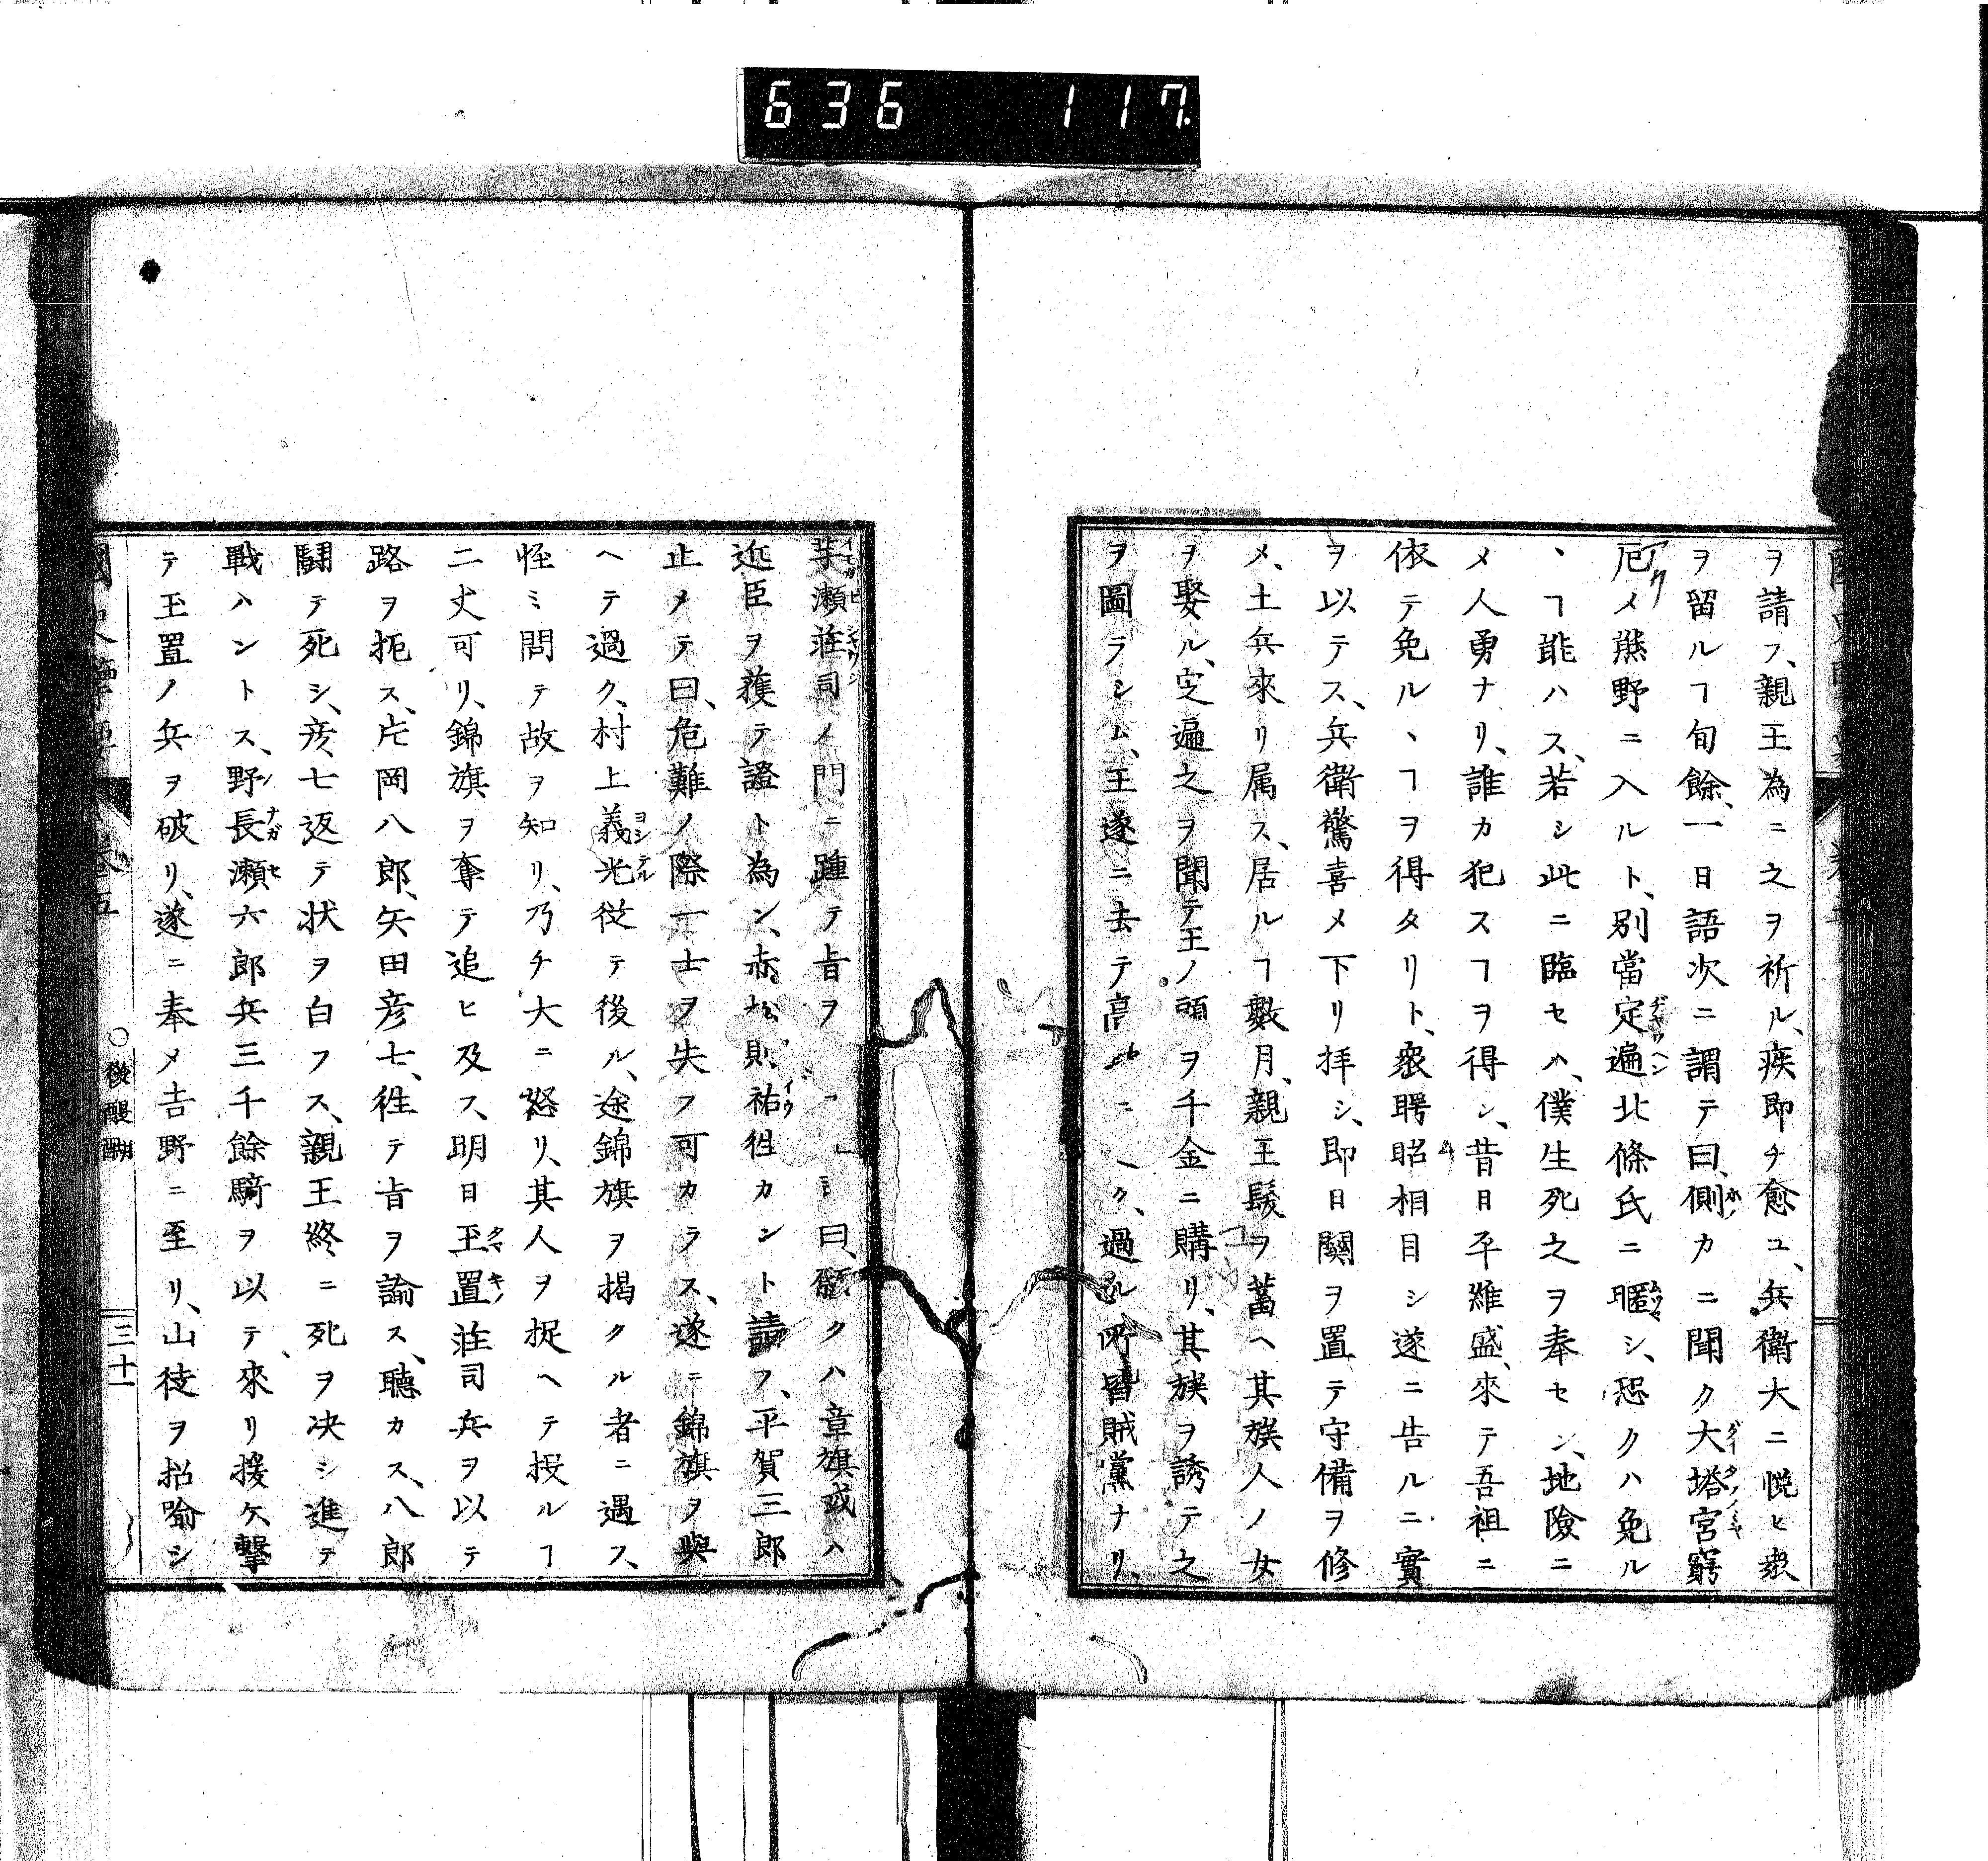 636 117.
ヲ請フ、親王為ニ之ヲ祈ル、疾即チ愈ユ、兵衛大ニ悦ヒ衆
ヲ留ルヿ旬餘、一日語次ニ謂テ曰、側カニ聞ク大塔宮窮
厄メ熊野ニ入ルト、別當定遍北條氏ニ暱シ、恐クハ免ル
ヽヿ能ハス、若シ此ニ臨セハ、僕生死之ヲ奉セン、地險ニ
メ人勇ナリ、誰カ犯スヿヲ得ン、昔日平維盛、來テ吾祖ニ
依テ免ルヽヿヲ得タリト、衆聘昭相目シ遂ニ告ルニ實
ヲ以テス、兵衛驚喜メ下リ拝シ、即日關ヲ置テ守備ヲ修
メ、土兵來リ属ス、居ルヿ數月、親王髮ヲ蓄ヘ其族人ノ女
ヲ娶ル、定遍之ヲ聞テ王ノ頭ヲ千金ニ購リ、其族ヲ誘テ之
ヲ圖ラシム、王遂ニ去テ高 ニ ク、過ル所皆賊黨ナリ、
芋瀬荘司ノ門ニ踵テ旨ヲ 曰、願クハ章旗或ハ
近臣ヲ獲テ證ト為ン、赤松則祐徃カント請フ、平賀三郎
止メテ曰、危難ノ際一士ヲ失フ可カラス、遂ニ錦旗ヲ與
ヘテ過ク、村上義光従テ後ル、途錦旗ヲ掲クル者ニ遇ス、
怪ミ問テ故ヲ知リ、乃チ大ニ怒リ、其人ヲ捉ヘテ投ルヿ
二丈可リ、錦旗ヲ奪テ追ヒ及フ、明日玉置荘司兵ヲ以テ
路ヲ扼ス、片岡八郎、矢田彦七、徃テ旨ヲ諭ス、聴カス、八郎
闘テ死シ、彦七返テ状ヲ白フス、親王終ニ死ヲ決シ進テ
戰ハントス、野長瀬六郎兵三千餘騎ヲ以テ來リ援ケ撃
テ玉置ノ兵ヲ破リ、遂ニ奉メ吉野ニ至リ、山徒ヲ招喩シ
卷五 ○後醍醐 三十一